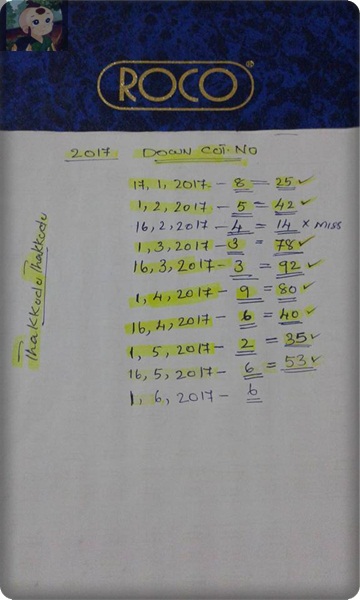 ROCO®
2017 DOWN CUT.NO
17, 1, 2017 - 8 = 25 ✓
1, 2, 2017 - 5 = 42 ✓
16, 2, 2017 - 4 = 14 × MISS
1, 3, 2017 - 3 = 78 ✓
16, 3, 2017 - 3 = 92 ✓
1, 4, 2017 - 9 = 80 ✓
16, 4, 2017 - 6 = 40 ✓
1, 5, 2017 - 2 = 35 ✓
16, 5, 2017 - 6 = 53 ✓
1, 6, 2017 - 6
Thakkodu Thakkodu